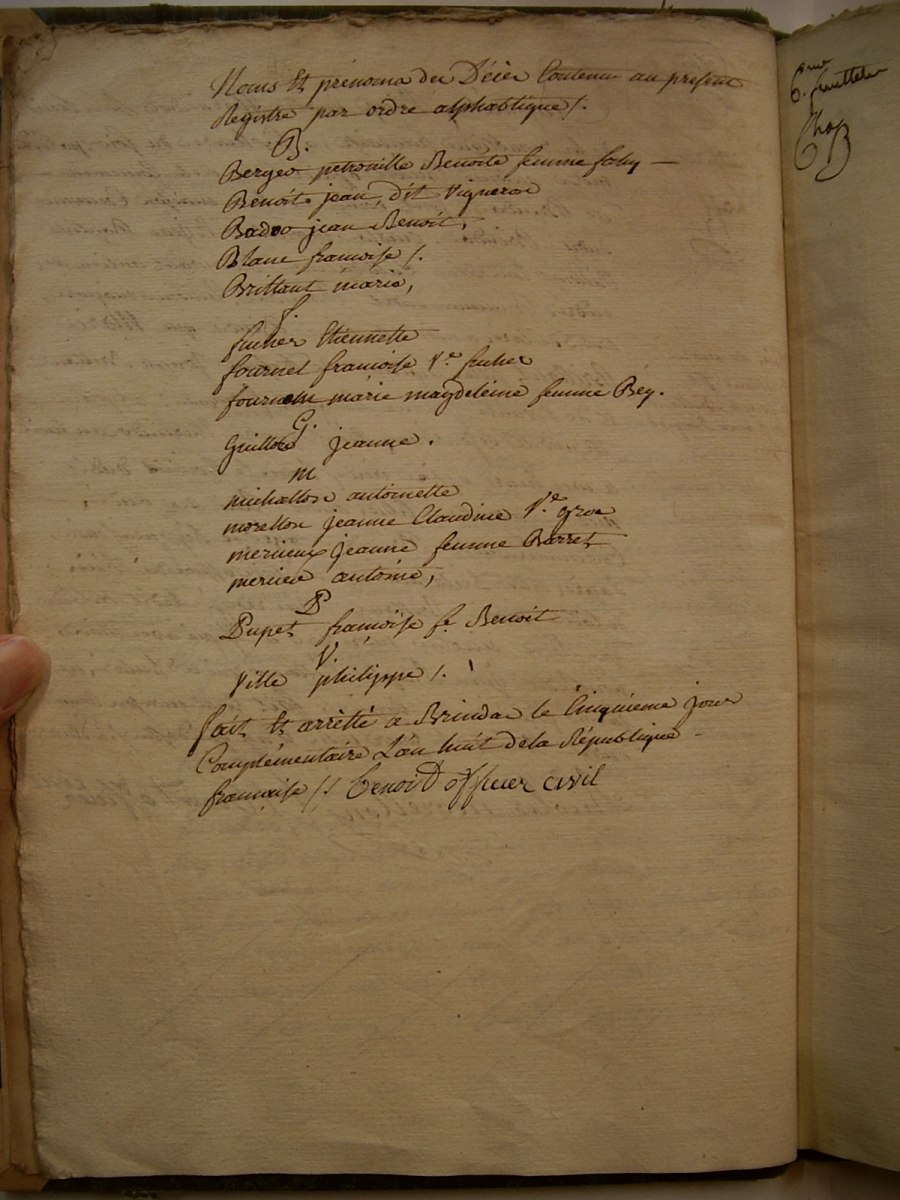 Noms Et prénoms des Décès Contenus au present
Registre par ordre alphabtique /.
B.
petronille Benoîte femme
Benoît jean, dit vigneron
Badoo jean Benoît,
Blanc francoise /.
Brittant marie,
f.
fucher Etiennette
fournel francoise Ve. fucher
marie magdeleine femme Bey.
G.
jeanne.
m
michallon antoinette
morellon jeanne Claudine Ve. gros
merieux jeanne femme Barret
mercier antoine,
P
Pupet francoise fe. Benoît
V.
Ville philippe /.
fait Et arrêtté a Brindas le Cinquième jour
Complémentaire L'an huit de la République
francaise /. Benoit officier civil
6me feuillet